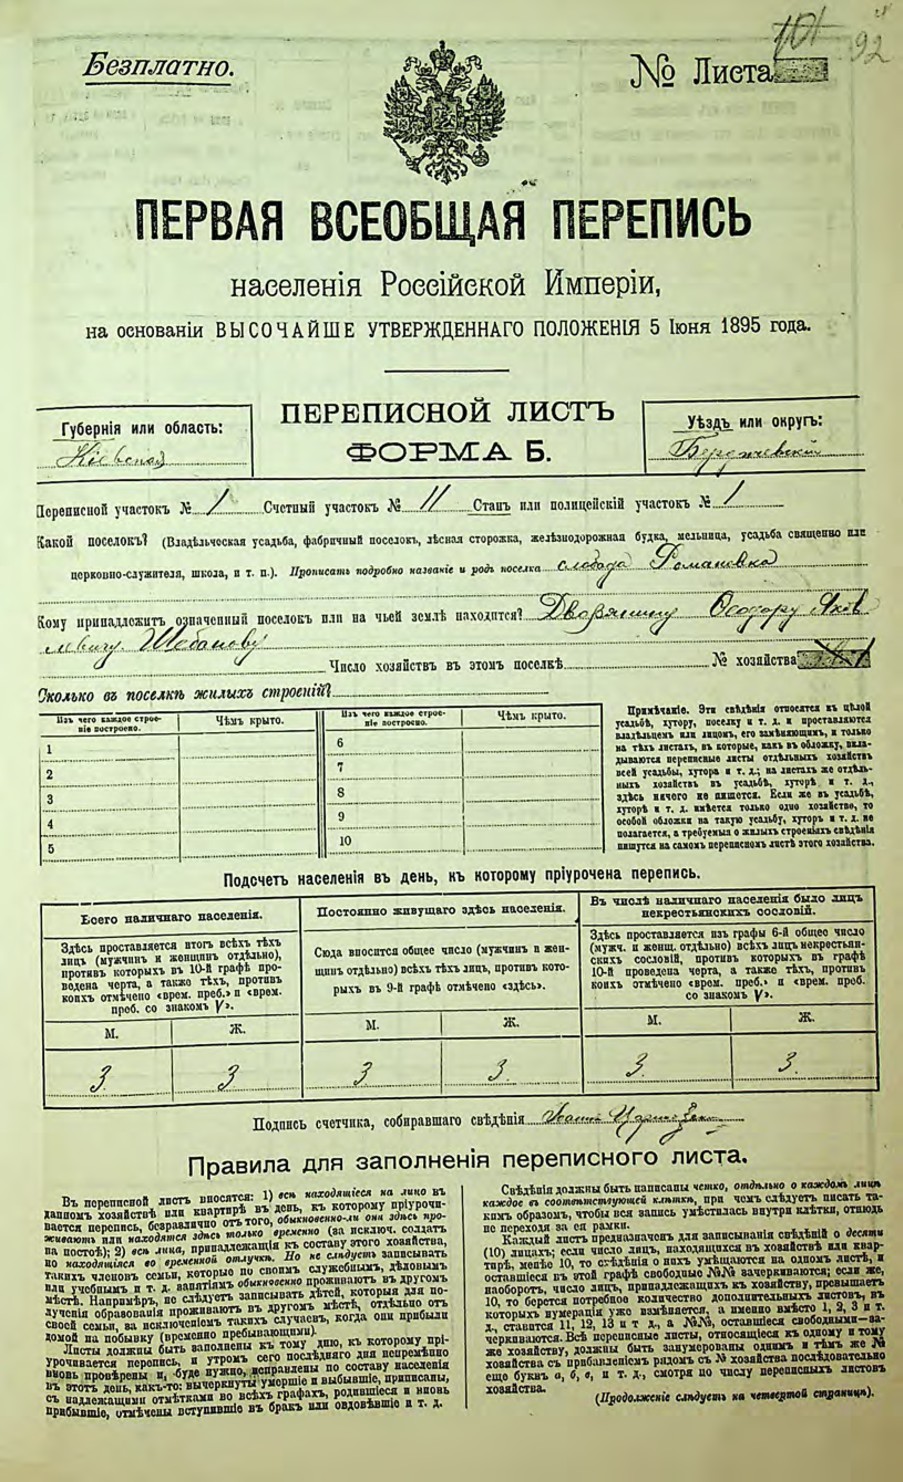 92
Безплатно.
№ Листа 101
ПЕРВАЯ ВСЕОБЩАЯ ПЕРЕПИСЬ
населенія Россійской Имперіи,
на основаніи ВЫСОЧАЙШЕ УТВЕРЖДЕННАГО ПОЛОЖЕНІЯ 5 Іюня 1895 года.
Губернія или область:
Кіевская
ПЕРЕПИСНОЙ ЛИСТЪ
ФОРМА Б.
Уѣздъ или округъ:
Бердичевскій
Переписной участокъ № 1 Счетный участокъ № 11 Станъ или полицейскій участокъ № 1
Какой поселокъ? (Владѣльческая усадьба, фабричный поселокъ, лѣсная сторожка, желѣзнодорожная будка, мельница, усадьба священно или
церковно-служителя, школа, и т. п.). Прописать подробно названіе и родъ поселка слобода Романовка
Кому принадлежитъ означенный поселокъ или на чьей землѣ находится? Дворянину Ѳеодору Яков
левичу Шебанову
Число хозяйствъ въ этомъ поселкѣ № хозяйства
Сколько въ поселкѣ жилыхъ строеній?
Изъ чего каждое строе-
ніе построено.
Чѣмъ крыто.
Изъ чего каждое строе-
ніе построено.
Чѣмъ крыто.
1
2
3
4
5
6
7
8
9
10
Примѣчаніе. Эти свѣдѣнія относятся къ цѣлой
усадьбѣ, хутору, поселку и т. д. и проставляются
владѣльцемъ или лицомъ, его замѣняющимъ, и только
на тѣхъ листахъ, въ которые, какъ въ обложку, вкла-
дываются переписные листы отдѣльныхъ хозяйствъ
всей усадьбы, хутора и т. д.; на листахъ же отдѣль-
ныхъ хозяйствъ въ усадьбѣ, хуторѣ и т. д.,
здѣсь ничего не пишется. Если же въ усадьбѣ,
хуторѣ и т. д. имѣется только одно хозяйство, то
особой обложки на такую усадьбу, хуторъ и т. д. не
полагается, а требуемыя о жилыхъ строеніяхъ свѣдѣнія
пишутся на самомъ переписномъ листѣ этого хозяйства.
Подсчетъ населенія въ день, къ которому пріурочена перепись.
Всего наличнаго населенія.
Здѣсь проставляется итогъ всѣхъ тѣхъ
лицъ (мужчинъ и женщинъ отдѣльно),
противъ которыхъ въ 10-й графѣ про-
ведена черта, а также тѣхъ, противъ
коихъ отмѣчено «врем. преб.» и «врем.
преб. со знакомъ V».
М.
Ж.
3
3
Постоянно живущаго здѣсь населенія.
Сюда вносится общее число (мужчинъ и жен-
щинъ отдѣльно) всѣхъ тѣхъ лицъ, противъ кото-
рыхъ въ 9-й графѣ отмѣчено «здѣсь».
М.
Ж.
3
3.
Въ числѣ наличнаго населенія было лицъ
некрестьянскихъ сословій.
Здѣсь проставляется изъ графы 6-й общее число
(мужч. и женщ. отдѣльно) всѣхъ лицъ некрестьян-
скихъ сословій, противъ которыхъ въ графѣ
10-й проведена черта, а также тѣхъ, противъ
коихъ отмѣчено «врем. преб.» и «врем. преб.
со знакомъ V».
М.
Ж.
3.
3.
Подпись счетчика, собиравшаго свѣдѣнія
Правила для заполненія переписного листа.
Въ переписной листъ вносятся: 1) всѣ находящіеся на лицо въ
данномъ хозяйствѣ или квартирѣ въ день, къ которому пріурочи-
вается перепись, безразлично отъ того, обыкновенно-ли они здѣсь про-
живаютъ или находятся здѣсь только временно (за исключ. солдатъ
на постоѣ); 2) всѣ лица, принадлежащія къ составу этого хозяйства,
но находящіяся во временной отлучкѣ. Но не слѣдуетъ записывать
такихъ членовъ семьи, которые по своимъ служебнымъ, дѣловымъ
или учебнымъ и т. д. занятіямъ обыкновенно проживаютъ въ другомъ
мѣстѣ. Напримѣръ, не слѣдуетъ записывать дѣтей, которыя для по-
лученія образованія проживаютъ въ другомъ мѣстѣ, отдѣльно отъ
своей семьи, за исключеніемъ такихъ случаевъ, когда они прибыли
домой на побывку (временно пребывающими).
Листы должны быть заполнены къ тому дню, къ которому прі-
урочивается перепись, и утромъ сего послѣдняго дня непремѣнно
вновь провѣрены и, буде нужно, исправлены по составу населенія
въ этотъ день, какъ-то: вычеркнуты умершіе и выбывшіе, приписаны,
съ надлежащими отмѣтками во всѣхъ графахъ, родившіеся и вновь
прибывшіе, отмѣчены вступившіе въ бракъ или овдовѣвшіе и т. д.
Свѣдѣнія должны быть написаны четко, отдѣльно о каждомъ лицѣ
каждое въ соотвѣтствующей клѣткѣ, при чемъ слѣдуетъ писать та-
кимъ образомъ, чтобы вся запись умѣстилась внутри клѣтки, отнюдь
не переходя за ея рамки.
Каждый листъ предназначенъ для записыванія свѣдѣній о десяти
(10) лицахъ; если число лицъ, находящихся въ хозяйствѣ или квар-
тирѣ, менѣе 10, то свѣдѣнія о нихъ умѣщаются на одномъ листѣ, и
оставшіеся въ этой графѣ свободные №№ вачеркиваются; если же,
наоборотъ, число лицъ, принадлежащихъ къ хозяйству, превышаетъ
10, то берется потребное количество дополнительныхъ листовъ, въ
которыхъ нумерація уже измѣняется, а именно вмѣсто 1, 2, 3 и т.
д., ставится 11, 12, 13 и т д., а №№, оставшіеся свободными—за-
черкиваются. Всѣ переписные листы, относящіеся къ одному и тому
же хозяйству, должны быть занумерованы однимъ и тѣмъ же №
хозяйства съ прибавленіемъ рядомъ съ № хозяйства послѣдовательно
еще буквъ а, б, в, и т. д., смотря по числу переписныхъ листовъ
хозяйства.
(Продолженіе слѣдуетъ на четвертой страницѣ).